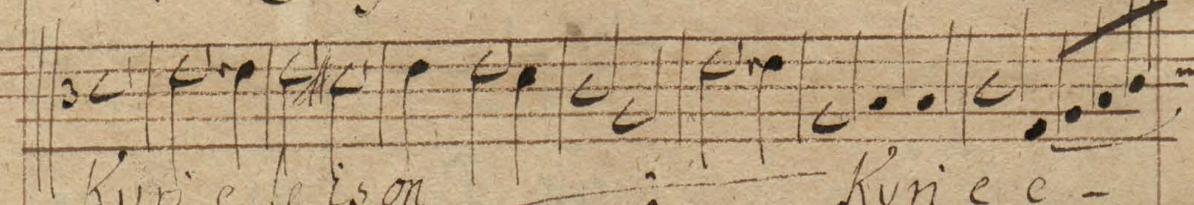 3
Kyrie eleison Kyrie e -